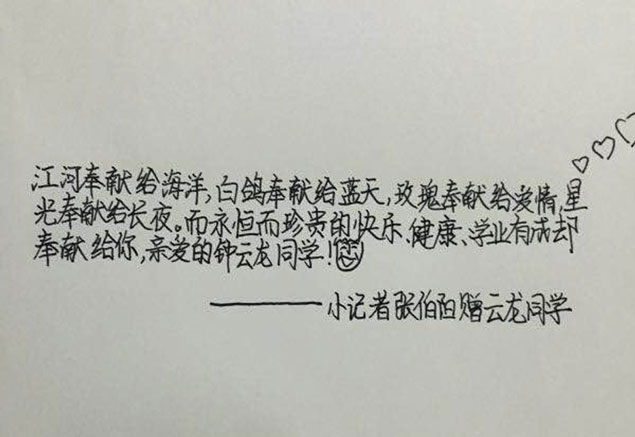 江河奉献给海洋,白鸽奉献给蓝天,玫瑰奉献给爱情,星
光奉献给长夜。而永恒而珍贵的快乐、健康、学业有成却
奉献给你,亲爱的钟云龙同学!
——小记者张伯阳赠云龙同学